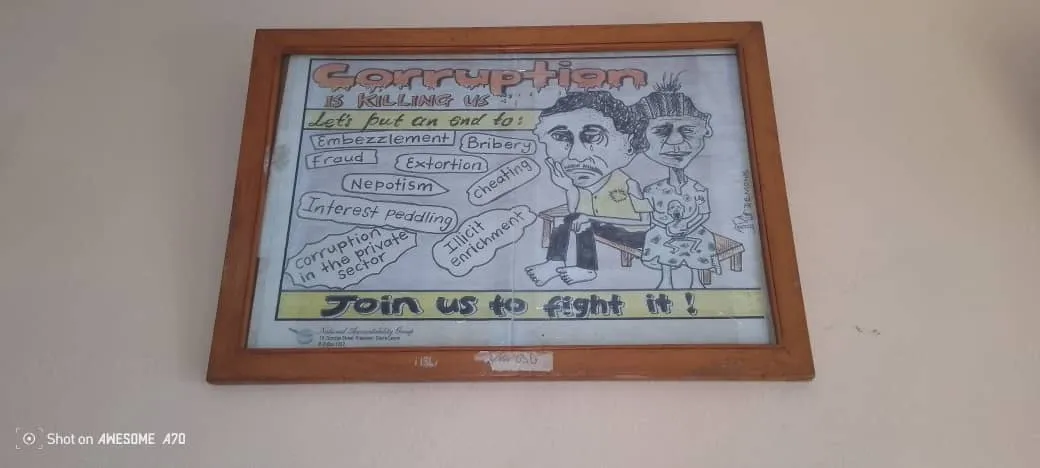 Corruption
IS KILLING US
Let's put an end to:
Embezzlement
Bribery
Fraud
Extortion
cheating
Nepotism
Interest peddling
Illicit
enrichment
corruption
in the private
sector
Join us to fight it!
National Accountability Group
Shot on AWESOME A70